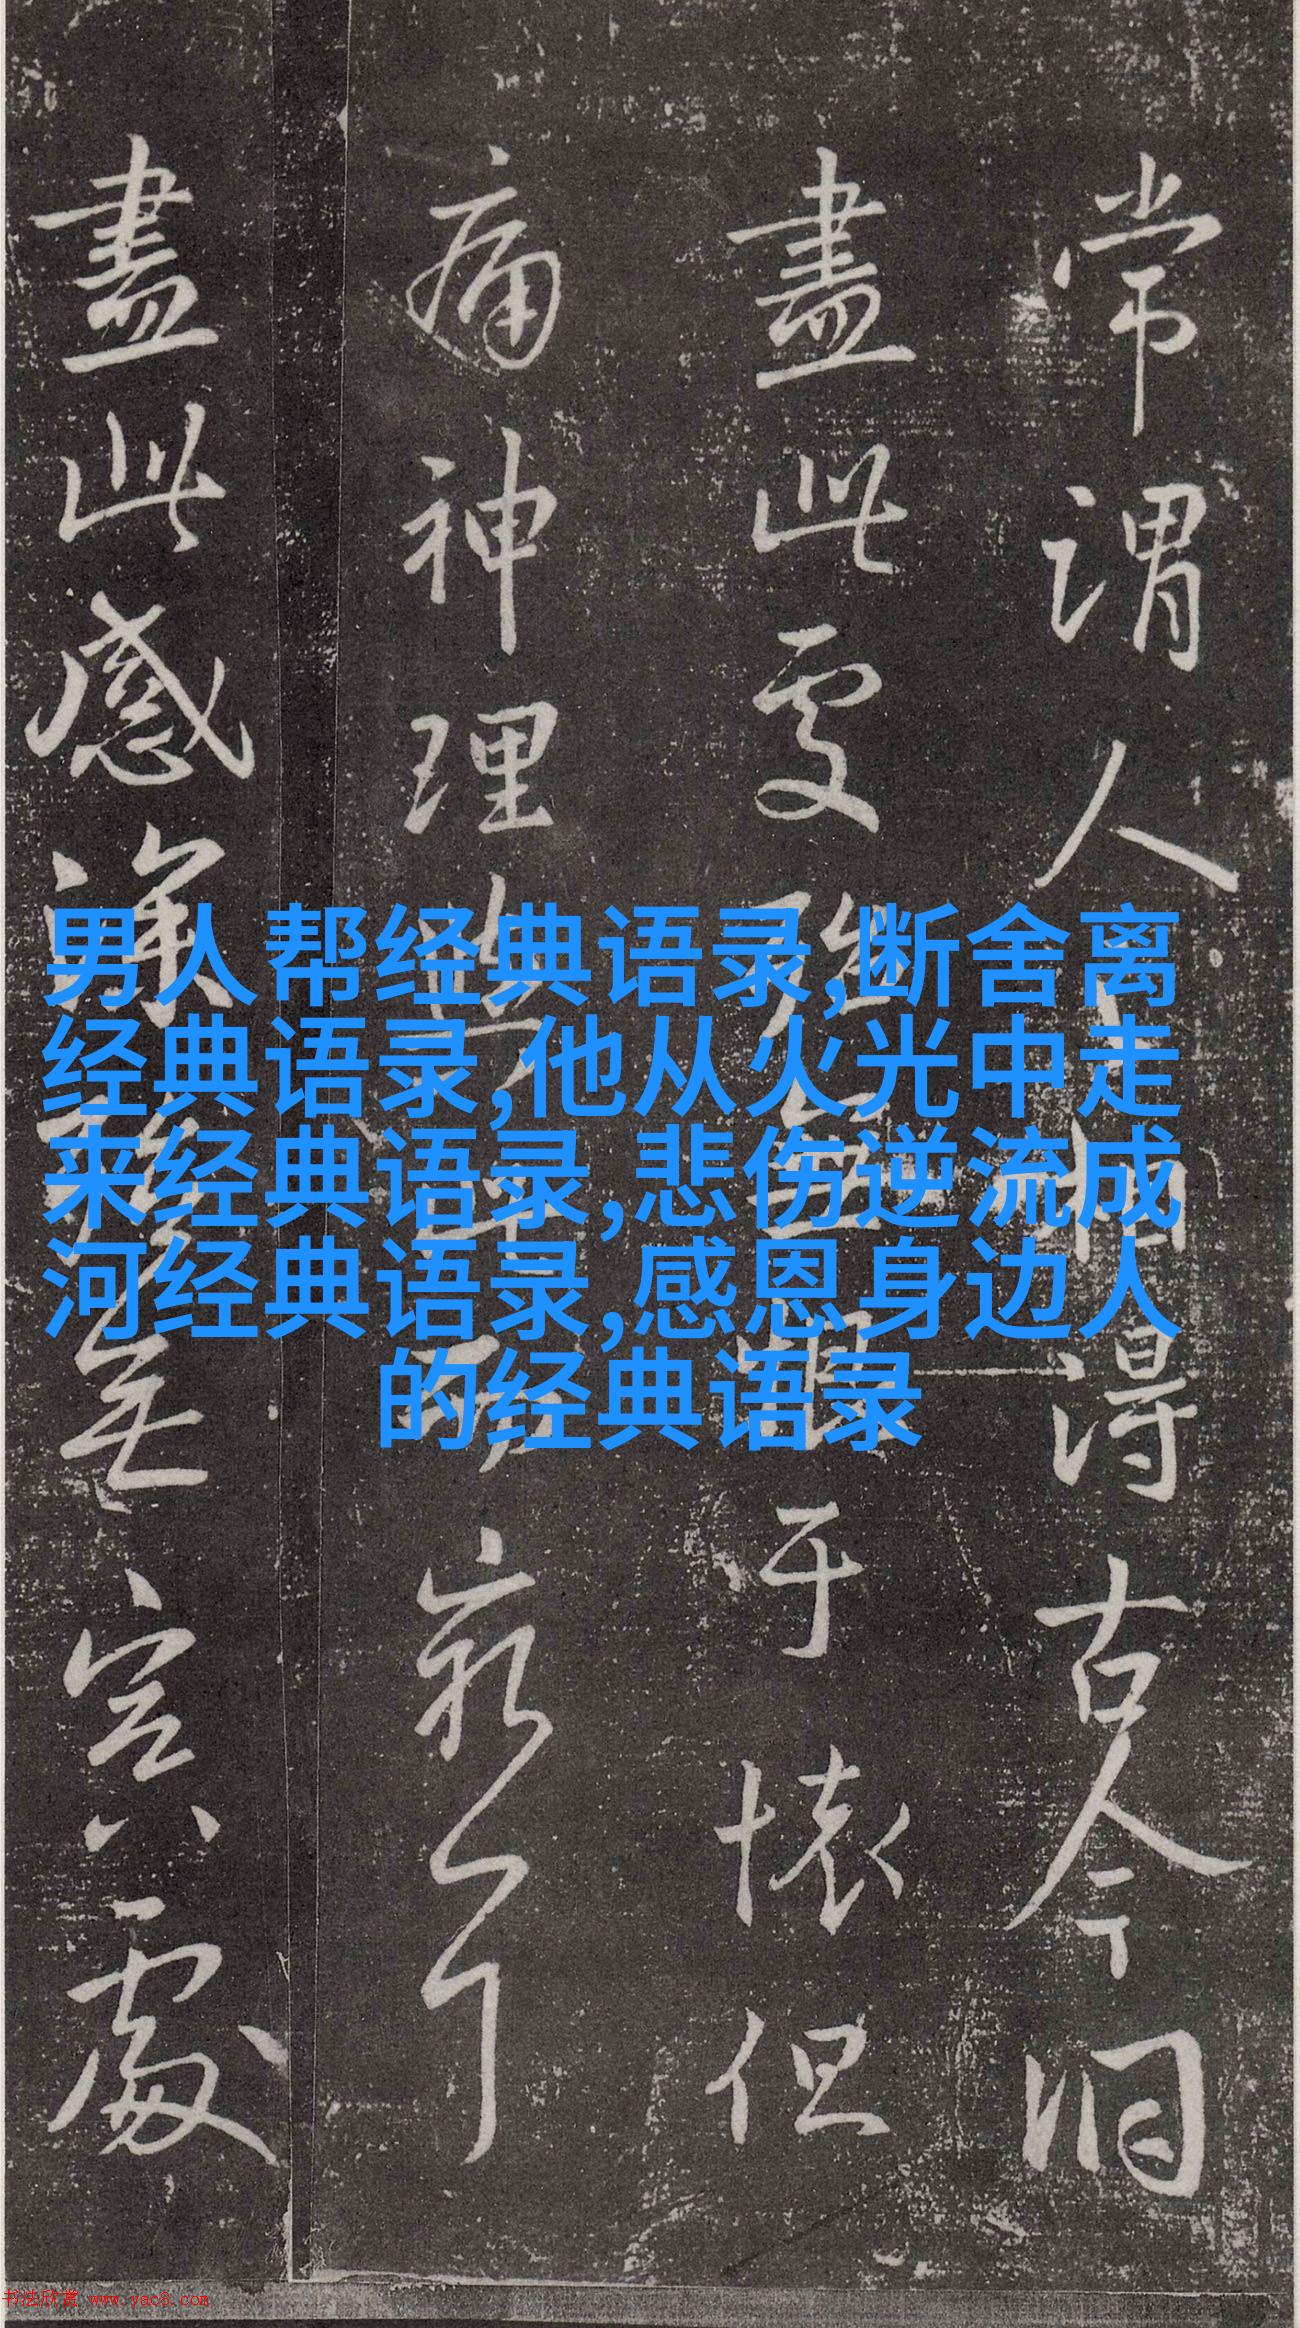 常謂人相得古今洞
盡此處殆無恨于懷但
痛神理
盡此感深
男人帮经典语录,断舍离
经典语录,他从火光中走
来经典语录,悲伤逆流成
河经典语录,感恩身边人
的经典语录
书法欣赏 www.yac8.com